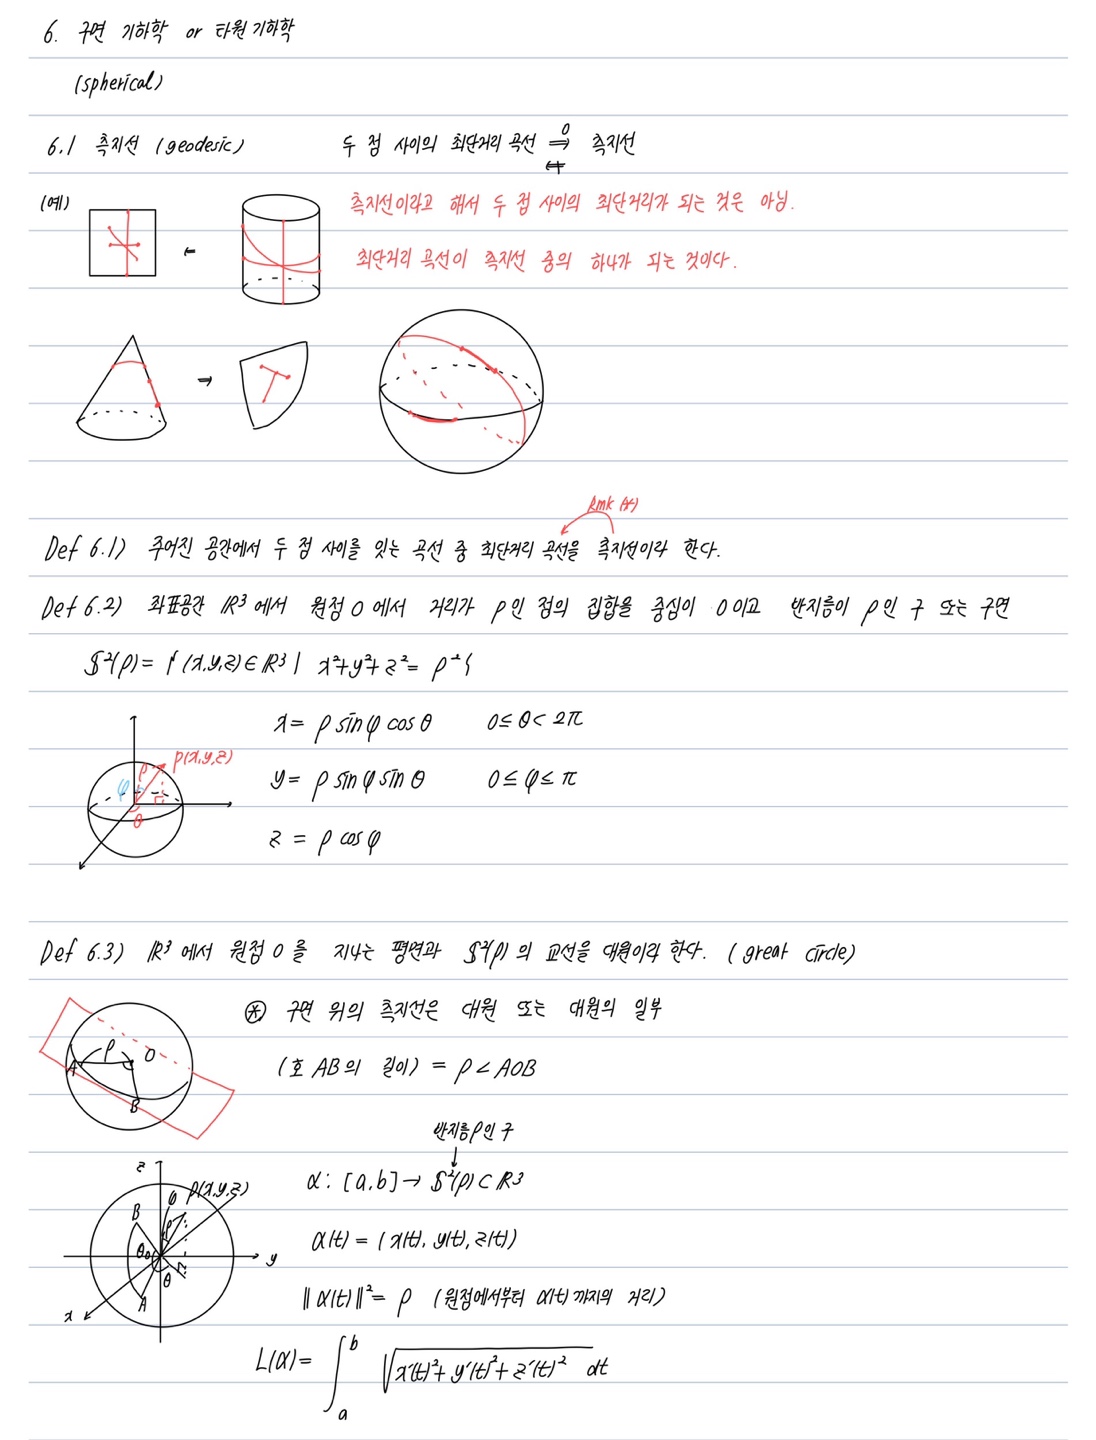 6. 구면 기하학 or 타원 기하학
(spherical)
6.1 측지선 (geodesic) 두 점 사이의 최단거리 곡선 ⇒ 측지선
O
⇍
(예)
측지선이라고 해서 두 점 사이의 최단거리가 되는 것은 아님.
최단거리 곡선이 측지선 중의 하나가 되는 것이다.
Rmk (*)
Def 6.1) 주어진 공간에서 두 점 사이를 잇는 곡선 중 최단거리 곡선을 측지선이라 한다.
Def 6.2) 좌표공간 ℝ³에서 원점 O에서 거리가 ρ인 점의 집합을 중심이 O이고 반지름이 ρ인 구 또는 구면
𝕊²(ρ) = { (x,y,z) ∈ ℝ³ | x²+y²+z² = ρ² }
x = ρ sinφ cosθ 0 ≤ θ < 2π
y = ρ sinφ sinθ 0 ≤ φ ≤ π
z = ρ cosφ
P(x,y,z)
ρ
φ
θ
Def 6.3) ℝ³에서 원점 O를 지나는 평면과 𝕊²(ρ)의 교선을 대원이라 한다. (great circle)
⊛ 구면 위의 측지선은 대원 또는 대원의 일부
(호 AB의 길이) = ρ∠AOB
ρ O
A
B
반지름 ρ인 구
α : [a,b] → 𝕊²(ρ) ⊂ ℝ³
α(t) = (x(t), y(t), z(t))
‖α(t)‖² = ρ (원점에서부터 α(t)까지의 거리)
L(α) = ∫ₐᵇ √(x'(t)² + y'(t)² + z'(t)²) dt
z
φ P(x,y,z)
B ρ
θ₀ y
θ
A
x